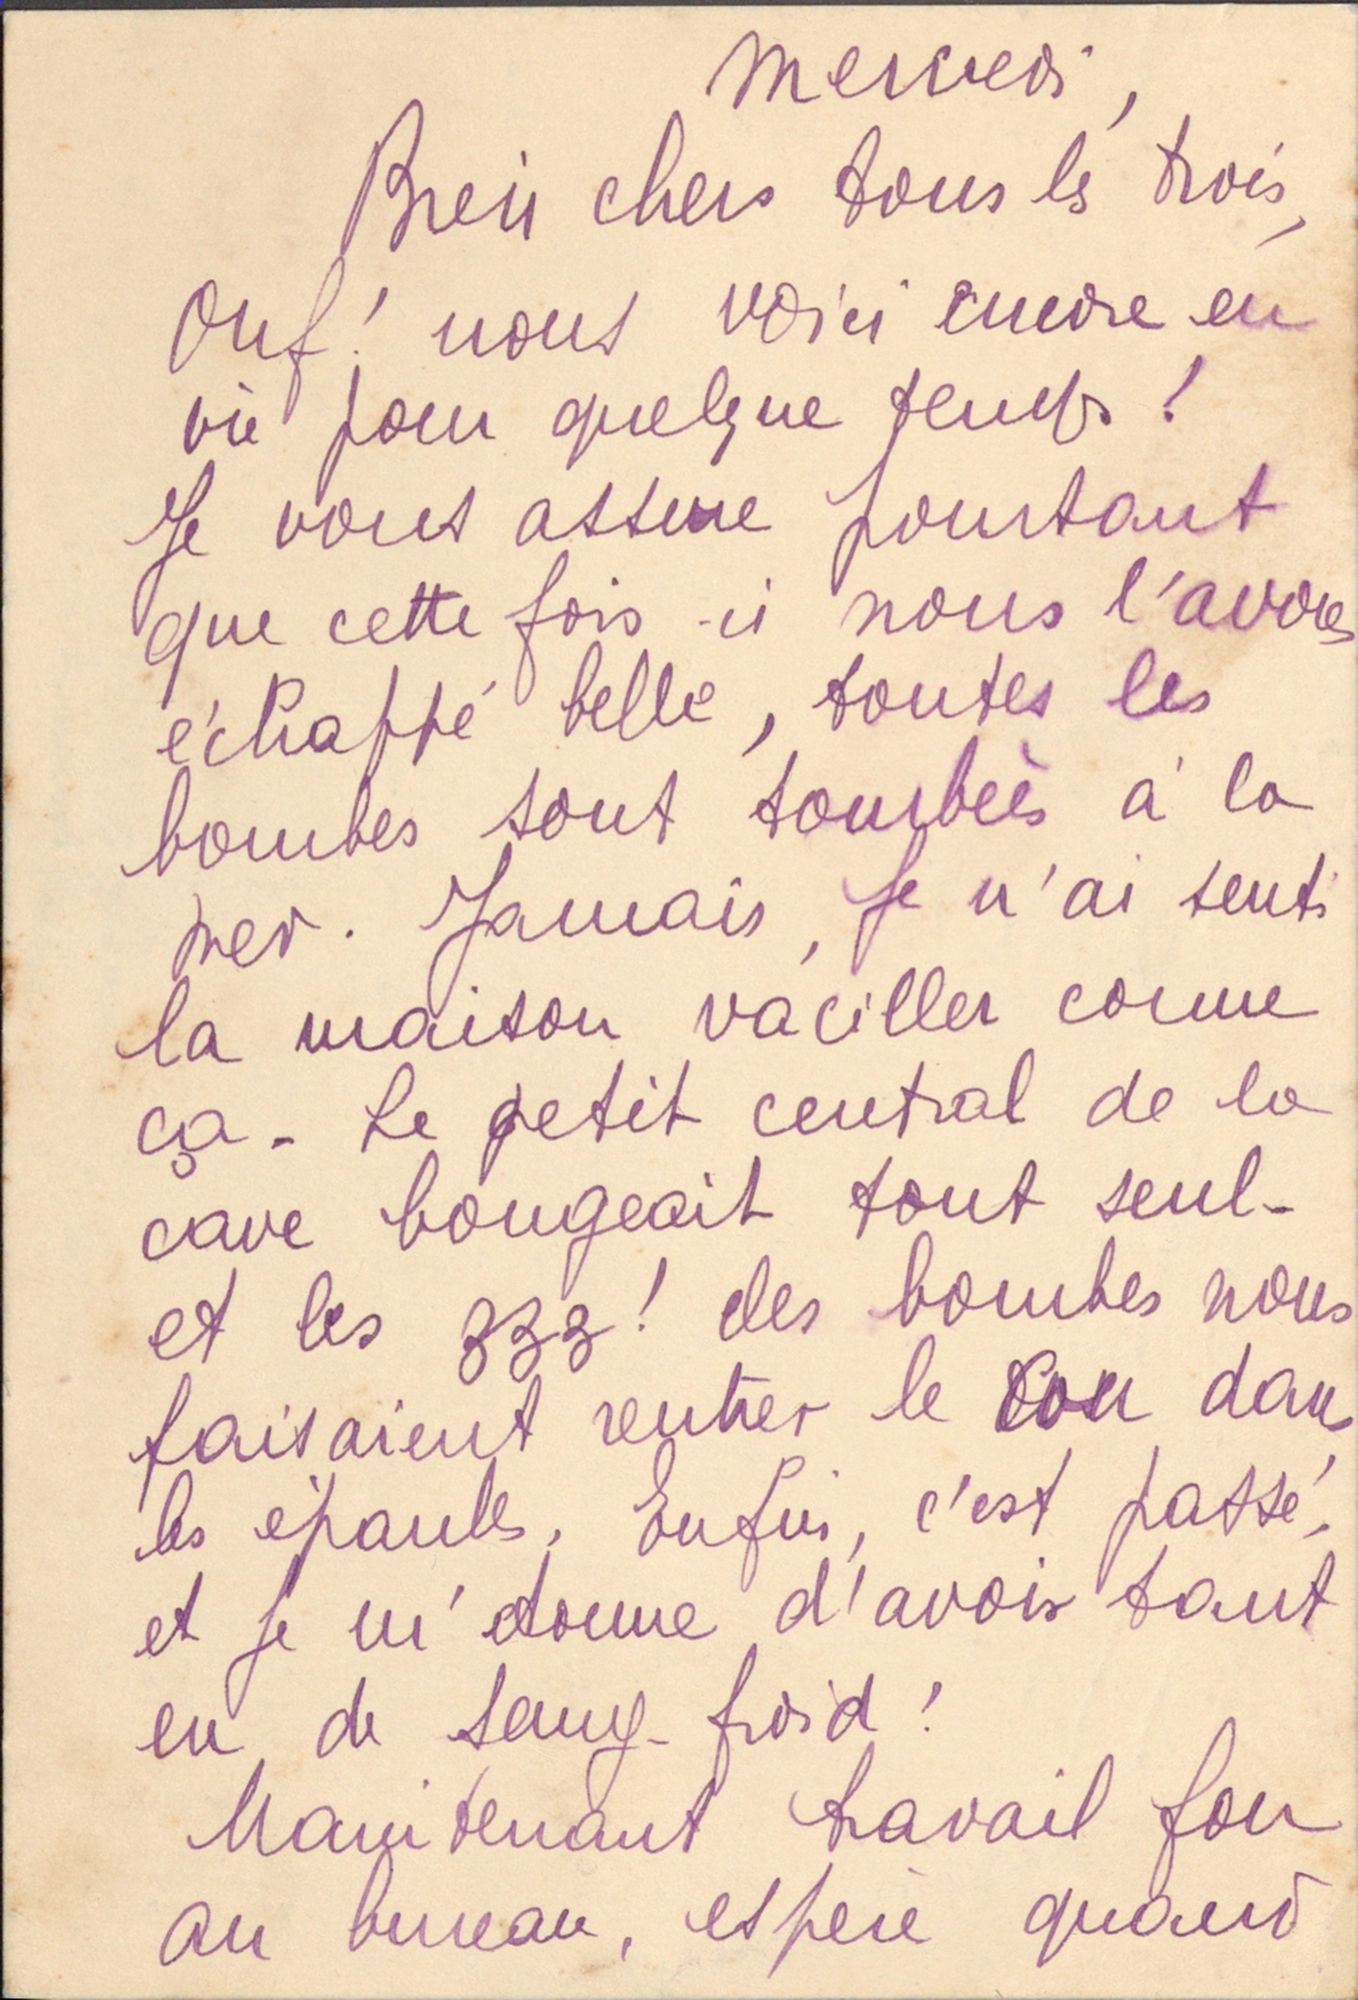 Mercredi,
Bien chers tous les trois,
Ouf! nous voici encore en
vie pour quelque temps!
Je vous assure pourtant
que cette fois-ci nous l'avons
échappé belle, toutes les
bombes sont tombées à la
mer. Jamais, je n'ai senti
la maison vaciller comme
ça - Le petit central de la
cave bougeait tout seul -
et les zzz! des bombes nous
faisaient rentrer le cou dans
les épaules. Enfin, c'est passé,
et je m'étonne d'avoir tant
eu de sang-froid!
Maintenant travail fou
au bureau, espère quand